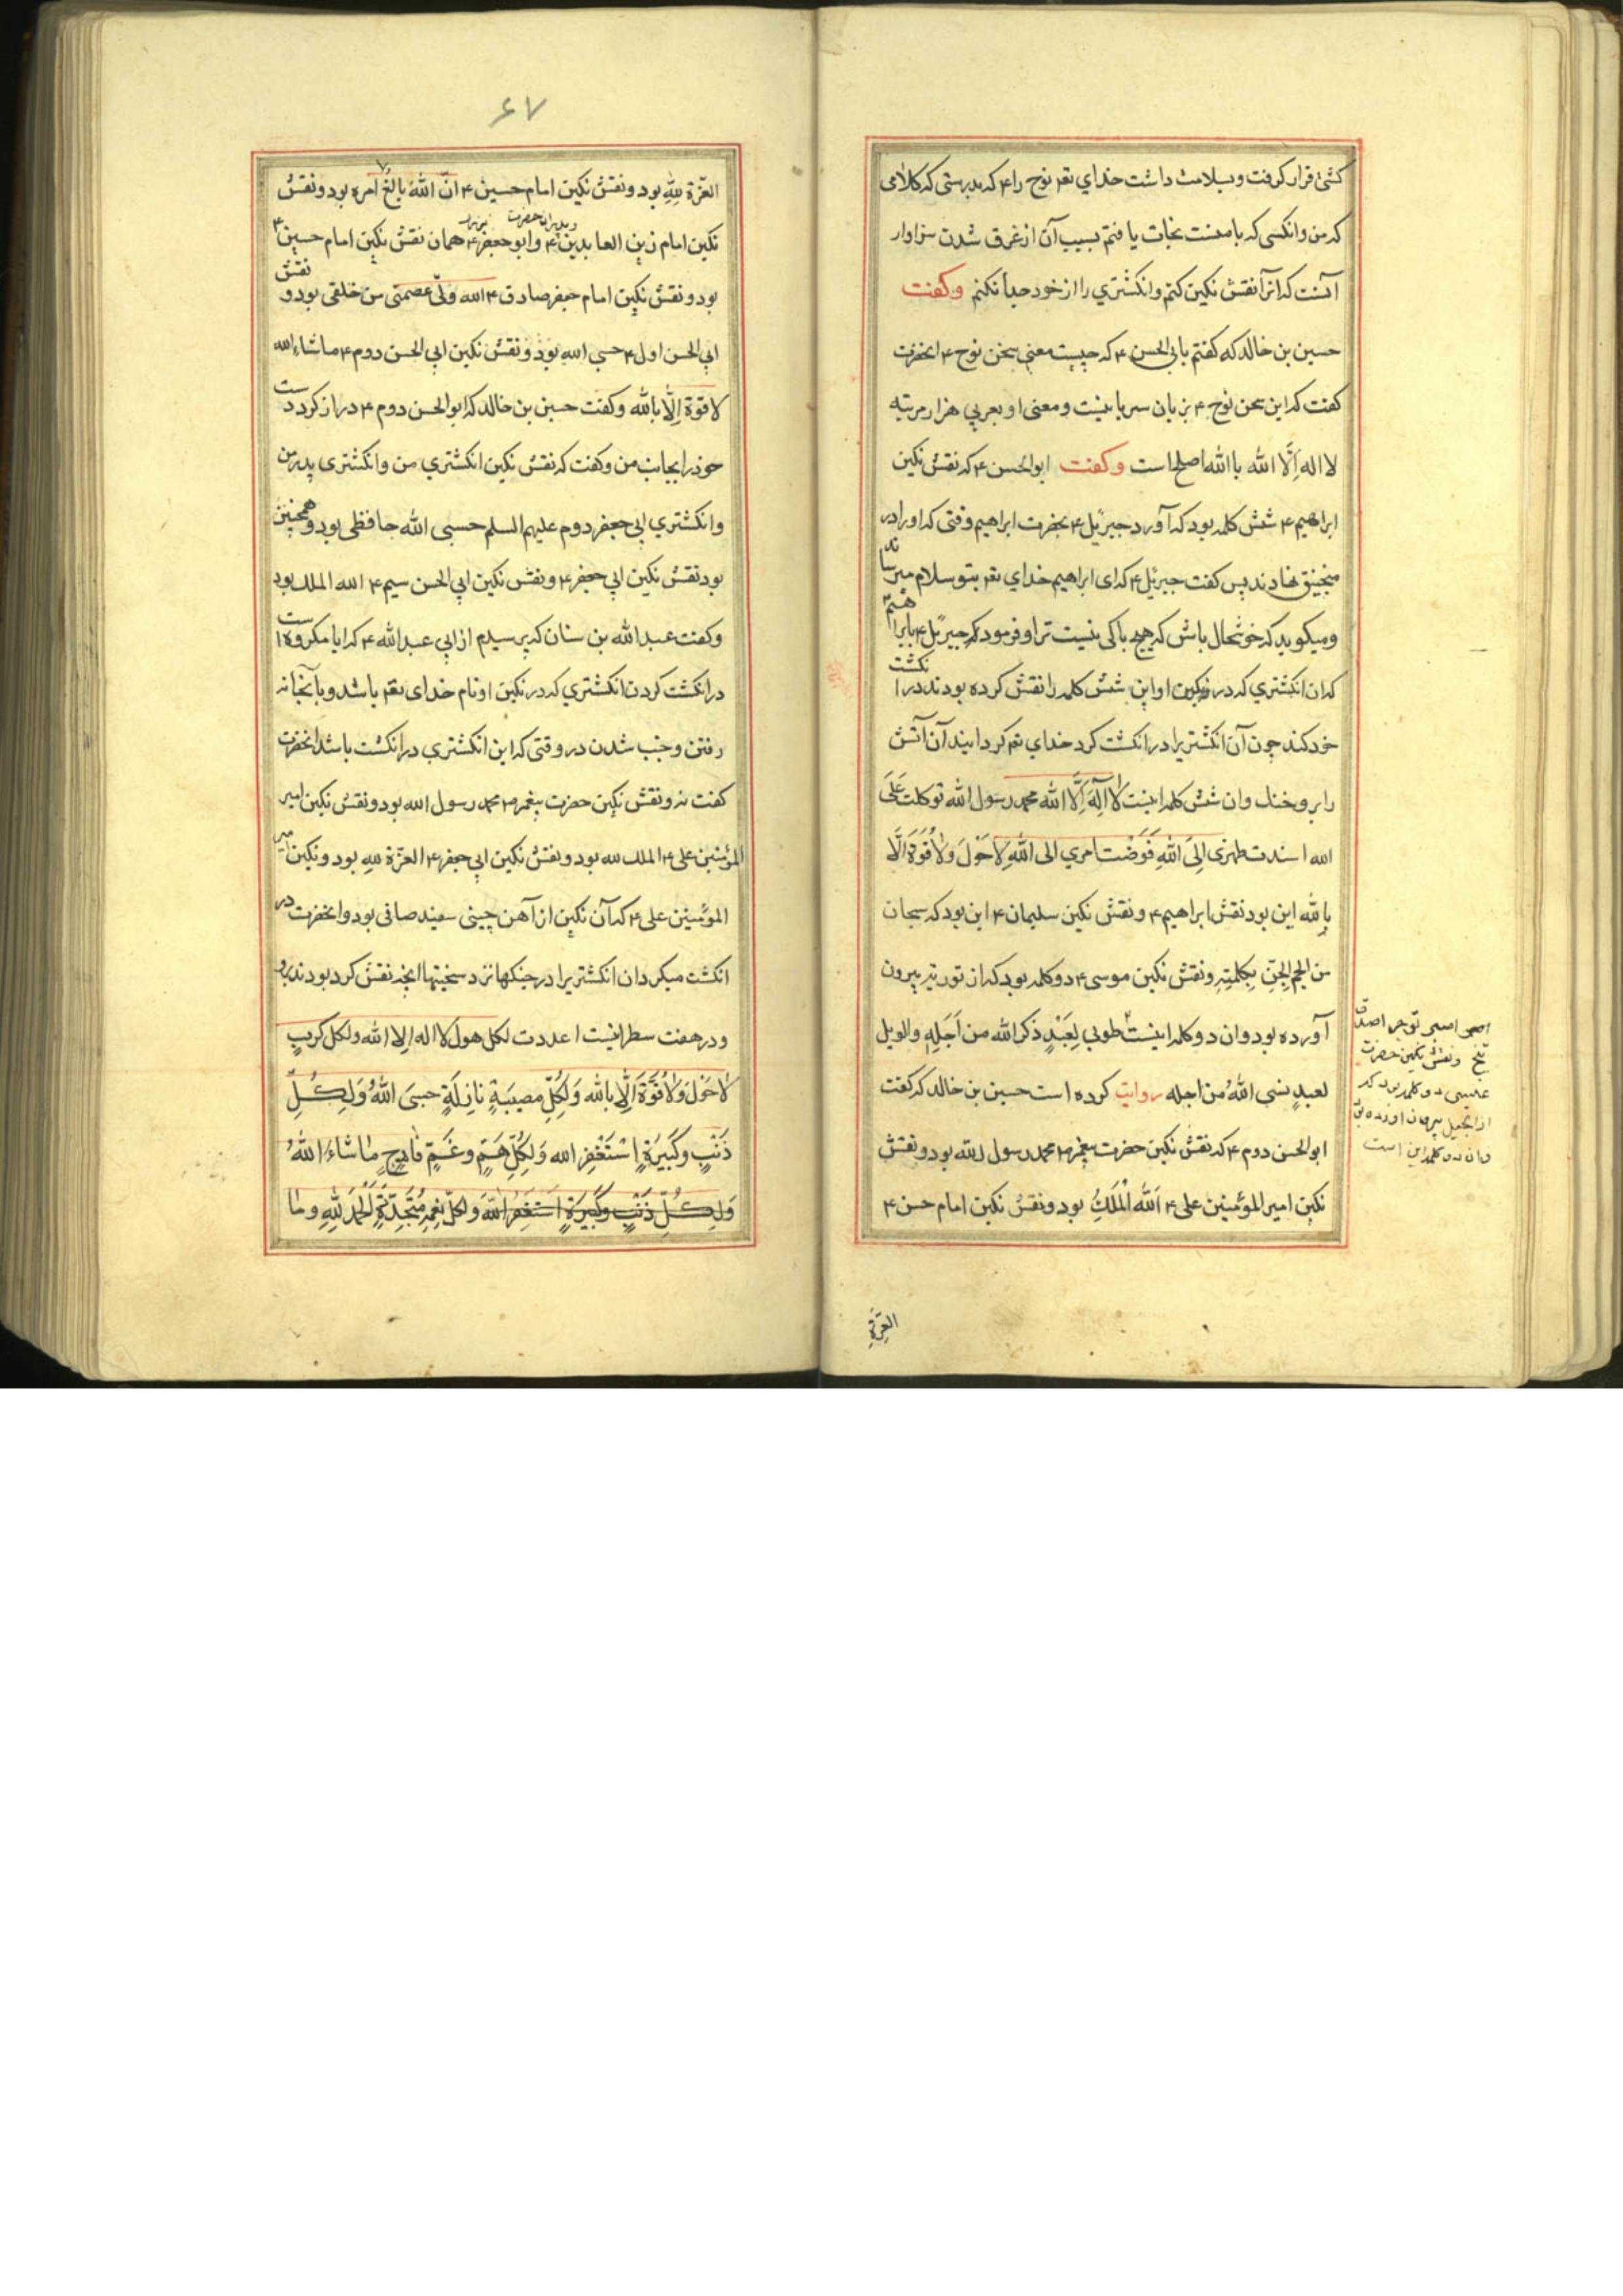 کشتی قرار کرفت و بسلامت داشت خدای تعم نوح را ۴ که بدرستی که کلامی
که من و انکسی که با منست نجات یافتم بسبب آن از غرق شدن سزاوار
آنست که انرا نقش نکین کنم و انکشتری را از خود جدا نکنم و کفت
حسین بن خالد که کفتم بابی الحسن ۴ که چیست معنی سخن نوح ۴ انحضرت
کفت که این سخن نوح ۴ بزبان سریانیست و معنی او بعربی هزار مرتبه
لا اله الّا الله یا الله اصلحاست و کفت ابوالحسن ۴ که نقش نکین
ابراهیم ۴ شش کلمه بود که آورد جبرئیل ۴ بحضرت ابراهیم وقتی که او را در
منجنیق نهادند پس کفت جبرئیل ۴ که ای ابراهیم خدای تعم بتو سلام میرساند
ومیکوید که خوشحال باش که هیچ باکی نیست ترا و فرمود که جبرئیل ۴ بابراهیم
که ان انکشتری که در نکین او این شش کلمه را نقش کرده بودند در انکشت
خود کند چون آن انکشتریرا در انکشت کرد خدای تعم کردانید آن آتش
را بر و خنك و ان شش کلمه اینست لا اِلٰهَ اِلَّا الله محمد رسول الله توکلت عَلَی
الله اسندت ظهری اِلَی اللهِ فَوَضْت امری الی اللهِ لا حَوْلَ وَلا قُوَةَ الَّا
بِاللهِ این بود نقش ابراهیم ۴ و نقش نکین سلیمان ۴ این بود که سبحان
من الجم الجِن بِکلمتِهِ و نقش نکین موسی ۴ دو کلمه بود که از توریة بیرون
آورده بود و ان دو کلمه اینست طوبی لِعَبْدٍ ذَکَرَ الله من اَجَلِهِ والویل
لعبدٍ نسی اللهُ من اجله روایت کرده است حسین بن خالد که کفت
ابوالحسن دوم ۴ که نقش نکین حضرت پیغمبر ۴ محمد رسول الله بود و نقش
نکین امیر المؤمنین علی ۴ اَللّهُ الْمَلَكِ بود و نقش نکین امام حسن ۴
و نقش نکین حضرت
عیسی دو کلمه بود که
از انجیل بیرون اورده بود
و ان دو کلمه این است
العِزّةِ
۶۷
العزّة لِلهِ بود و نقش نکین امام حسین ۴ انّ اللهَ بالغُ امره بود و نقش
نکین امام زین العابدین ۴ و ابو جعفر ۴ همان نقش نکین امام حسین ۴
بود و نقش نکین امام جعفر صادق ۴ الله ولیّ عصمتی من خلقی بود و نقش
ابی الحسن اول ۴ حسبی الله بود و نقش نکین ابی الحسن دوم ۴ ماشاء الله
لا قوة اِلّا بالله و کفت حسین بن خالد که ابوالحسن دوم ۴ دراز کرد دست
خود را بجانب من و کفت که نقش نکین انکشتری من و انکشتری پدر من
و انکشتری ابی جعفر دوم علیهم السلم حسبی الله حافظی بود و همچنین
بود نقش نکین ابی جعفر ۴ و نقش نکین ابی الحسن سیم ۴ الله الملك بود
و کفت عبد الله بن سنان که پرسیدم از ابی عبد الله ۴ که ایا مکروه است
در انکشت کردن انکشتری که در نکین او نام خدای تعم باشد و بآنخانه
رفتن و جنب شدن در وقتی که این انکشتری در انکشت باشد انحضرت
کفت نه و نقش نکین حضرت پیغمبر ۴ محمد رسول الله بود و نقش نکین امیر
المؤمنین علی ۴ الملك لله بود و نقش نکین ابی جعفر ۴ العزّة للهِ بود و نکین امیر
المؤمنین علی ۴ که آن نکین از آهن چینی سفید صافی بود و انحضرت در
انکشت میکرد ان انکشتریرا در جنکها نزد سختیها انچه نقش کرد بودند برو
و در هفت سطر اینست اعددت لکل هول لا اله الا الله ولکل کربٍ
لا حَوْلَ وَلا قُوَّةَ الّا بِالله وَلِکُلِّ مصیبَةٍ نازِلَةٍ حسبیَ اللهُ وَلِکُلِّ
ذَنْبٍ وکَبیرَةٍ اسْتَغْفِر الله وَلِکُلِّ هَمٍّ وغَمٍّ فادِحٍ ماشاءَ اللهُ
وَلِکُلِّ ذَنْبٍ وکَبیرَةٍ اَستَغفِرُ اللهَ وَلِکُلِّ نِعْمَةٍ مُتَجَدِّدَةٍ اَلحَمدُ لِلّهِ وما